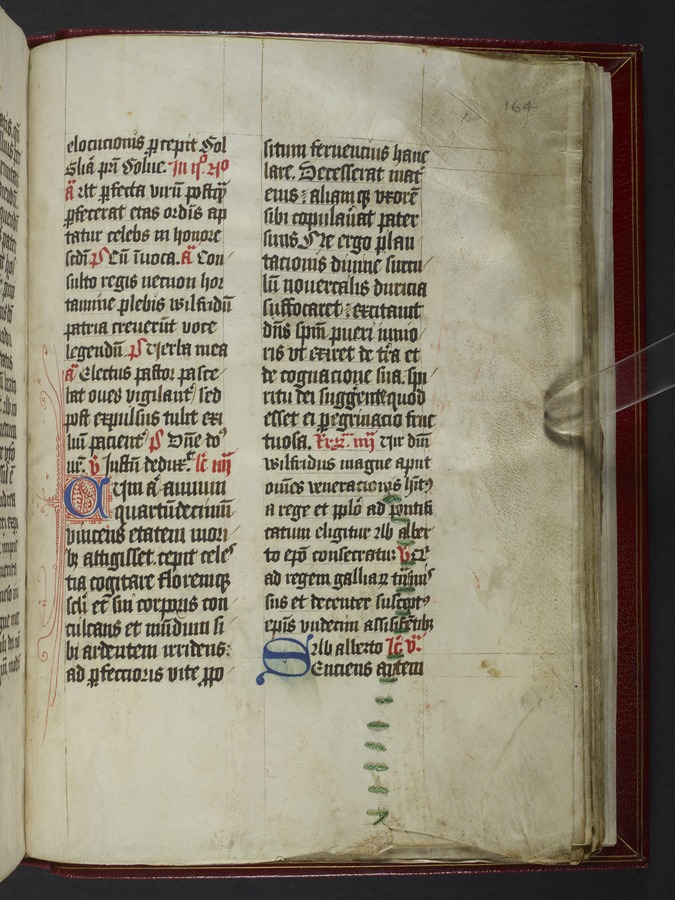 164
elocucionis p̱cepit Sol
In ij⁹. no
a᷑ vt ꝑfecta virū
ꝑfecerat etas ordīs ap
tatur celebs in honore
Cū īuoca. a᷑ Con
sulto regis necnon hor
tamine plebis wilfridū
patria creuerūt voce
legendū. ps̄ Verba mea
a᷑ Electus pastor pasce
bat oues vigilant᷑ sed
post expulsus tulit exi
lium pacient᷑ ps̄ Dn̄e
v᷑ Iustū dedux. lc̄ iiij
Cum a᷑ annum
quartūdecimū
vincens etatem mori
bꝫ attigisset. cepit cele
stia cogitare floremqꝫ
scl̄i et sui corporis con
culcans et mūdum si
bi ardentem irridens:
ad ꝑfectioris vite ꝓpo
situm feruencius hane
lare. Decesserat mat᷑
eius: aliamqꝫ vxorē
sibi copulauat pater
suus. Ne ergo plan
tacionis diuine surcu
lū nouercalis duricia
suffocaret: excitauit
dn̄s spm̄ pueri iunio
ris vt exiret de tr̄a et
de cognacione sua. spi
ritu dei suggerente quod
esset ei peregrinacio fruc
tuosa. iiij Vir dūi
wilfridus magne aput
om̄es veneracionis hitꝰ
a rege et pplō ad pontifi
catum eligitur Ab alber
to epō consecratur
ad regem galliaꝝ
sus et decenter susceptꝰ
epīs vndecim assistētibꝫ
Ab alberto lc̄ v᷑.
Senciens autem